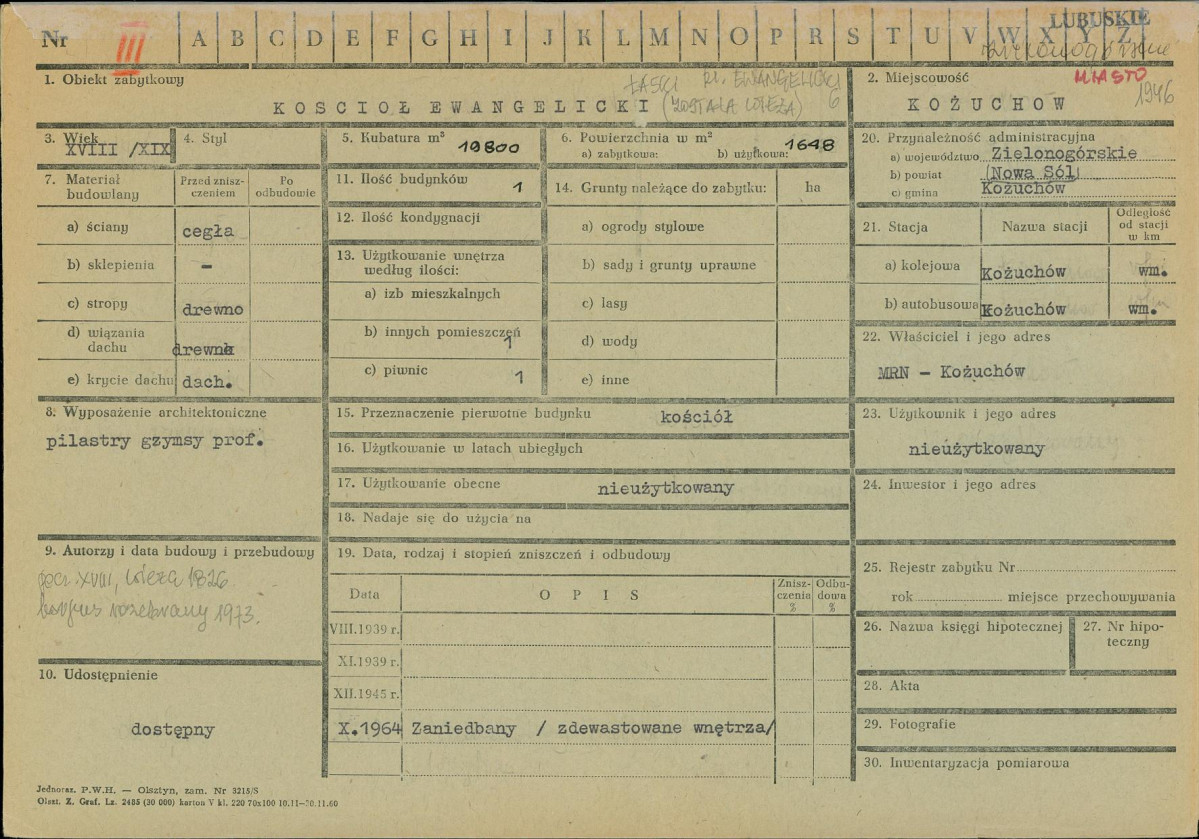 LUBUSKIE
Nr III A B C D E F G H I J K L M N O P R S T U V W X Y Z
zielonogórskie
1. Obiekt zabytkowy
ŁASKI pl. EWANGELICKI 6
KOŚCIOŁ EWANGELICKI (ZOSTAŁA WIEŻA)
2. Miejscowość MIASTO 1946
KOŻUCHOW
3. Wiek
XVIII /XIX
4. Styl
5. Kubatura m³
19800
6. Powierzchnia w m²
a) zabytkowa: b) użytkowa: 1648
7. Materiał budowlany
Przed zniszczeniem
Po odbudowie
a) ściany cegła
b) sklepienia –
c) stropy drewno
d) wiązania dachu drewno
e) krycie dachu dach.
8. Wyposażenie architektoniczne
pilastry gzymsy prof.
9. Autorzy i data budowy i przebudowy
pocz XVIII, wieża 1826
korpus rozebrany 1973.
10. Udostępnienie
dostępny
11. Ilość budynków 1
12. Ilość kondygnacji
13. Użytkowanie wnętrza według ilości:
a) izb mieszkalnych
b) innych pomieszczeń 1
c) piwnic 1
14. Grunty należące do zabytku: ha
a) ogrody stylowe
b) sady i grunty uprawne
c) lasy
d) wody
e) inne
15. Przeznaczenie pierwotne budynku kościół
16. Użytkowanie w latach ubiegłych
17. Użytkowanie obecne nieużytkowany
18. Nadaje się do użycia na
19. Data, rodzaj i stopień zniszczeń i odbudowy
Data OPIS Zniszczenia % Odbudowa %
VIII.1939 r.
XI.1939 r.
XII.1945 r.
X.1964 Zaniedbany / zdewastowane wnętrza/
20. Przynależność administracyjna
a) województwo Zielonogórskie
b) powiat (Nowa Sól)
c) gmina Kożuchów
21. Stacja Nazwa stacji Odległość od stacji w km
a) kolejowa Kożuchów wm.
b) autobusowa Kożuchów wm.
22. Właściciel i jego adres
MRN – Kożuchów
23. Użytkownik i jego adres
nieużytkowany
24. Inwestor i jego adres
25. Rejestr zabytku Nr
rok miejsce przechowywania
26. Nazwa księgi hipotecznej
27. Nr hipoteczny
28. Akta
29. Fotografie
30. Inwentaryzacja pomiarowa
Jednoraz. P.W.H. — Olsztyn, zam. Nr 3215/S
Olszt. Z. Graf. Lz. 2485 (30 000) karton V kl. 220 70x100 10.11—20.11.60